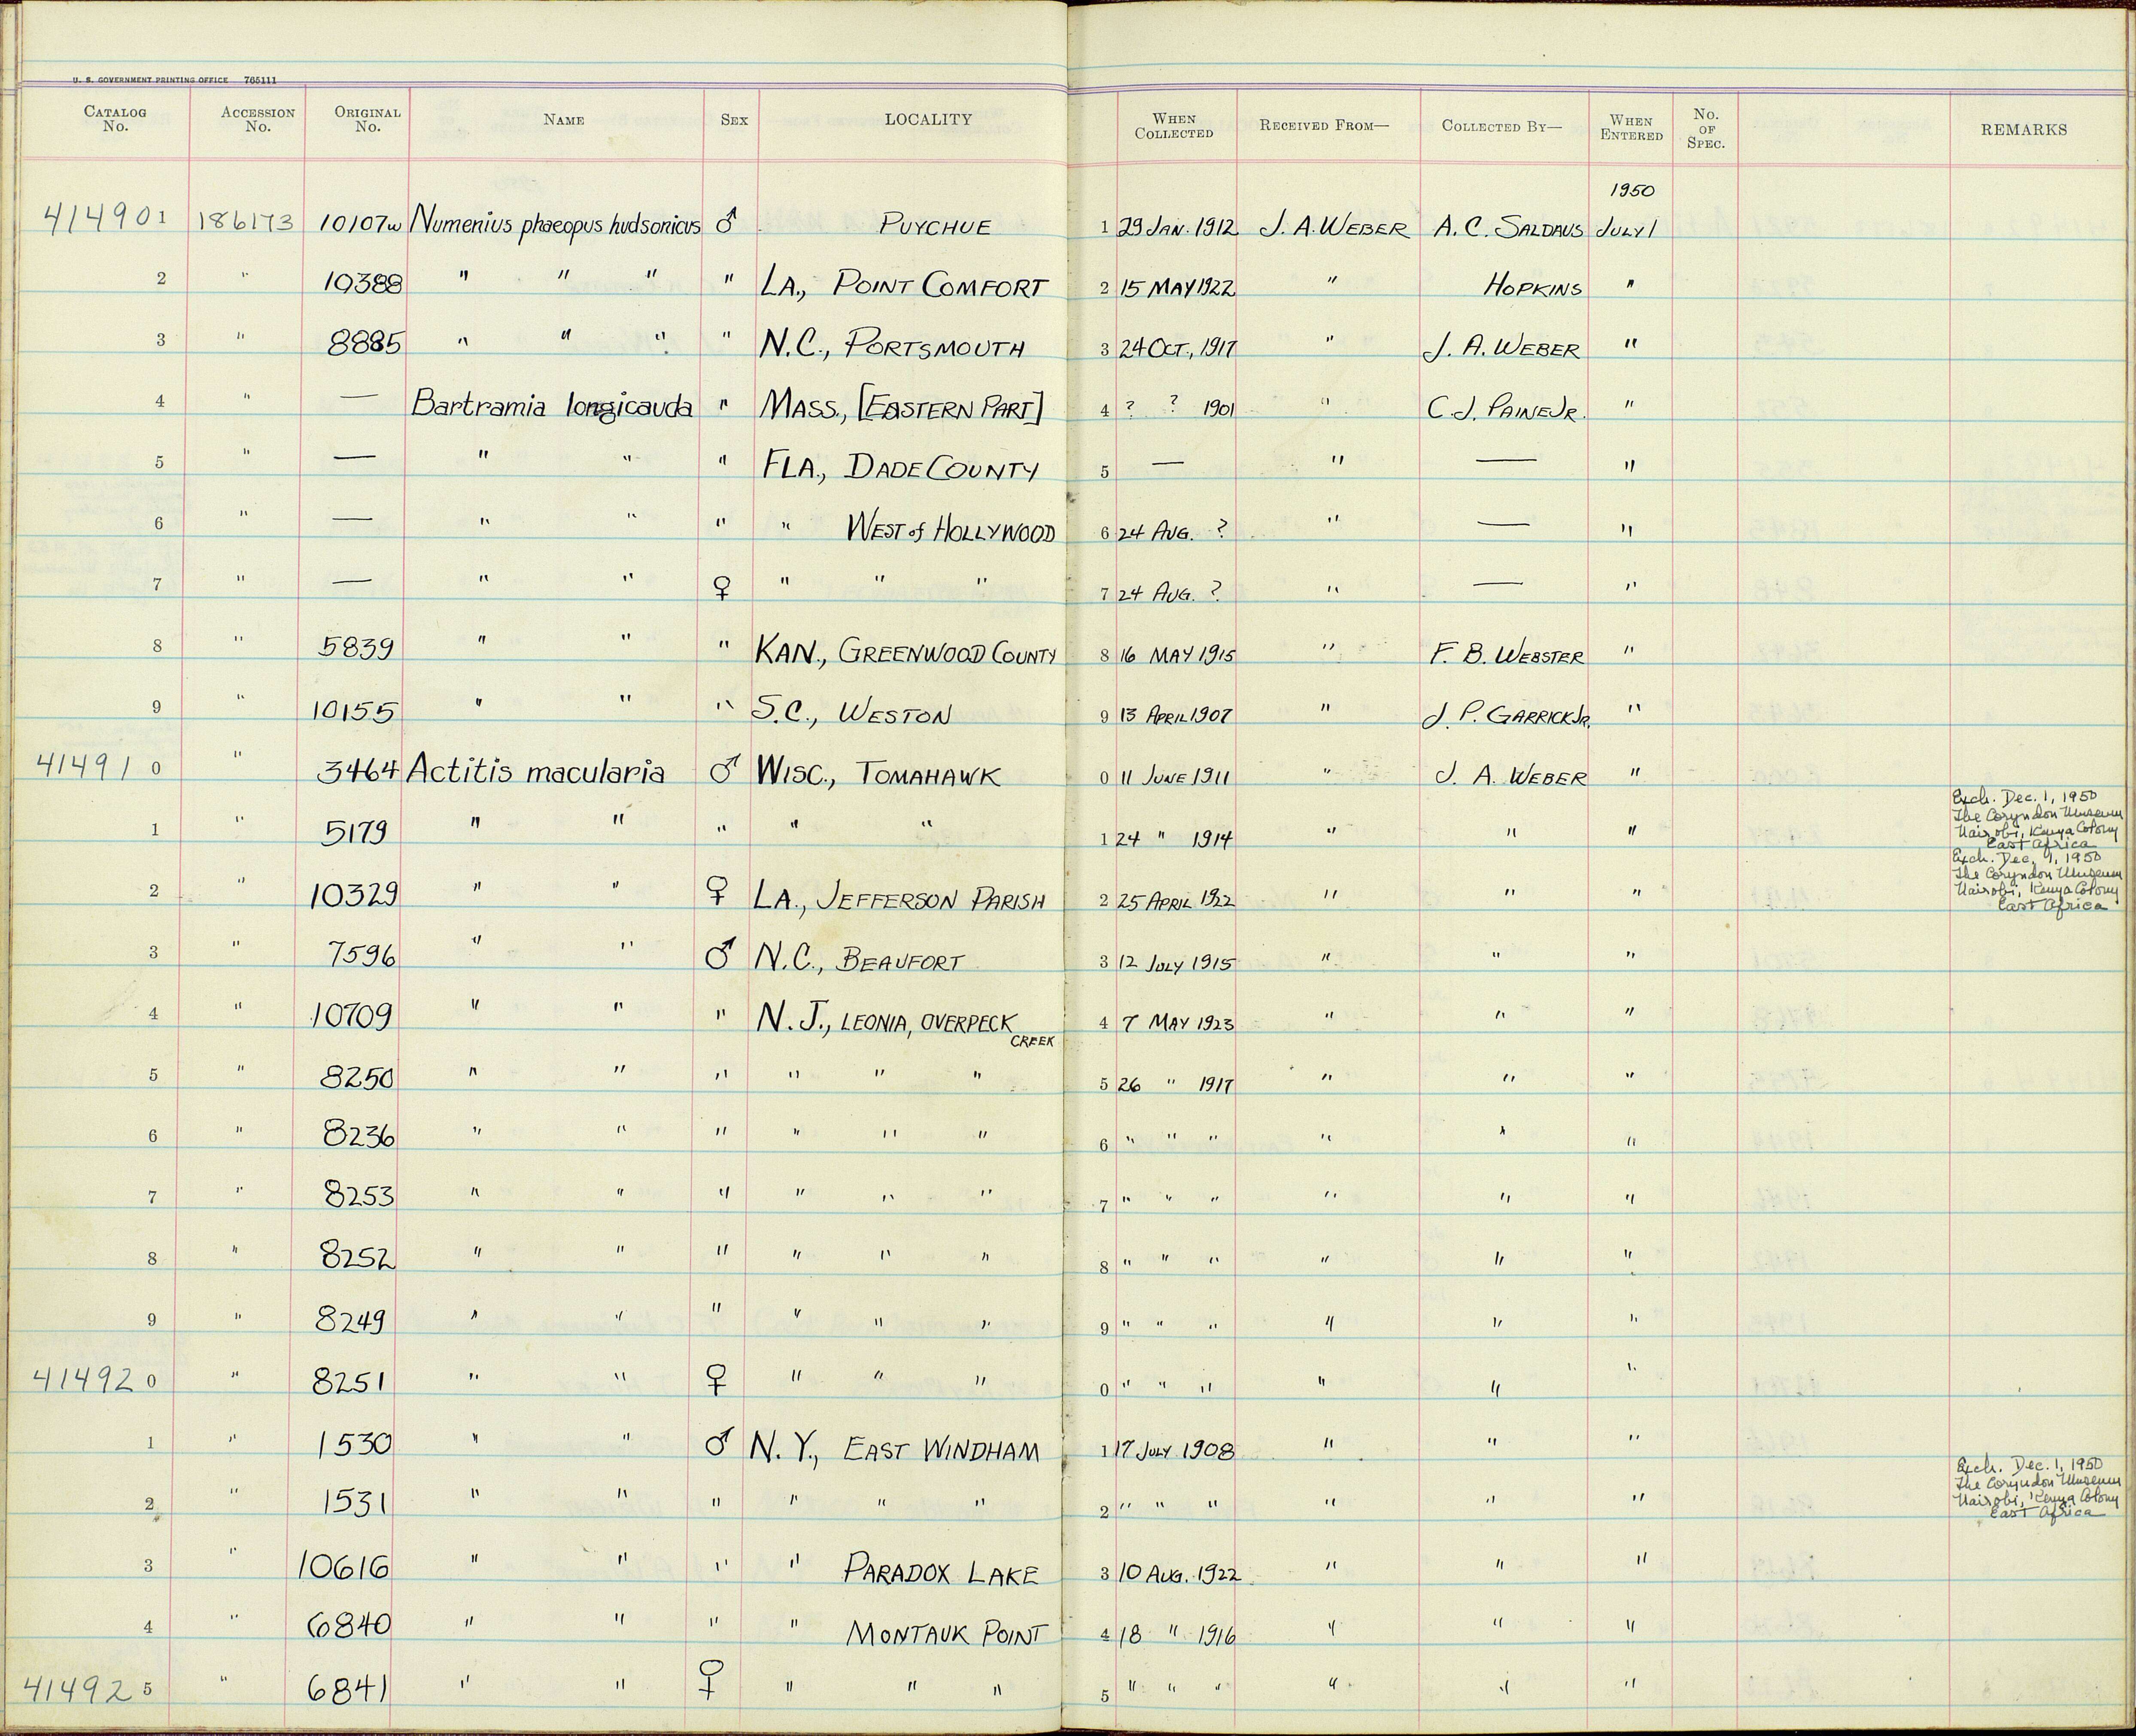 U. S. GOVERNMENT PRINTING OFFICE 765111
CATALOG No. ACCESSION No. ORIGINAL No. NAME SEX LOCALITY WHEN COLLECTED RECEIVED FROM— COLLECTED BY— WHEN ENTERED No. OF SPEC. REMARKS
1950
414901 186173 10107w Numenius phaeopus hudsonicus ♂ PUYCHUE 1 29 JAN. 1912 J. A. WEBER A. C. SALDAUS JULY 1
2 " 10388 " " " " LA., POINT COMFORT 2 15 MAY 1922 " HOPKINS "
3 " 8885 " " " " N.C., PORTSMOUTH 3 24 OCT., 1917 " J. A. WEBER "
4 " — Bartramia longicauda " MASS., [EASTERN PART] 4 ? ? 1901 " C. J. PAINE JR. "
5 " — " " " FLA., DADE COUNTY 5 — " — "
6 " — " " " " WEST of HOLLYWOOD 6 24 AUG. ? " — "
7 " — " " ♀ " " " 7 24 AUG. ? " — "
8 " 5839 " " " KAN., GREENWOOD COUNTY 8 16 MAY 1915 " F. B. WEBSTER "
9 " 10155 " " " S.C., WESTON 9 13 APRIL 1907 " J. P. GARRICK JR. "
414910 " 3464 Actitis macularia ♂ WISC., TOMAHAWK 0 11 JUNE 1911 " J. A. WEBER "
1 " 5179 " " " " " 1 24 " 1914 " " " Exch. Dec. 1, 1950
The Coryndon Museum
Nairobi, Kenya Colony
East Africa
2 " 10329 " " ♀ LA., JEFFERSON PARISH 2 25 APRIL 1922 " " " Exch. Dec. 1, 1950
The Coryndon Museum
Nairobi, Kenya Colony
East Africa
3 " 7596 " " ♂ N.C., BEAUFORT 3 12 JULY 1915 " " "
4 " 10709 " " " N.J., LEONIA, OVERPECK CREEK 4 7 MAY 1923 " " "
5 " 8250 " " " " " " 5 26 " 1917 " " "
6 " 8236 " " " " " " 6 " " " " " "
7 " 8253 " " " " " " 7 " " " " " "
8 " 8252 " " " " " " 8 " " " " " "
9 " 8249 " " " " " " 9 " " " " " "
414920 " 8251 " " ♀ " " " 0 " " " " " "
1 " 1530 " " ♂ N.Y., EAST WINDHAM 1 17 JULY 1908 " " "
2 " 1531 " " " " " " 2 " " " " " " Exch. Dec. 1, 1950
The Coryndon Museum
Nairobi, Kenya Colony
East Africa
3 " 10616 " " " " PARADOX LAKE 3 10 AUG. 1922 " " "
4 " 6840 " " " " MONTAUK POINT 4 18 " 1916 " " "
414925 " 6841 " " ♀ " " " 5 " " " " " "